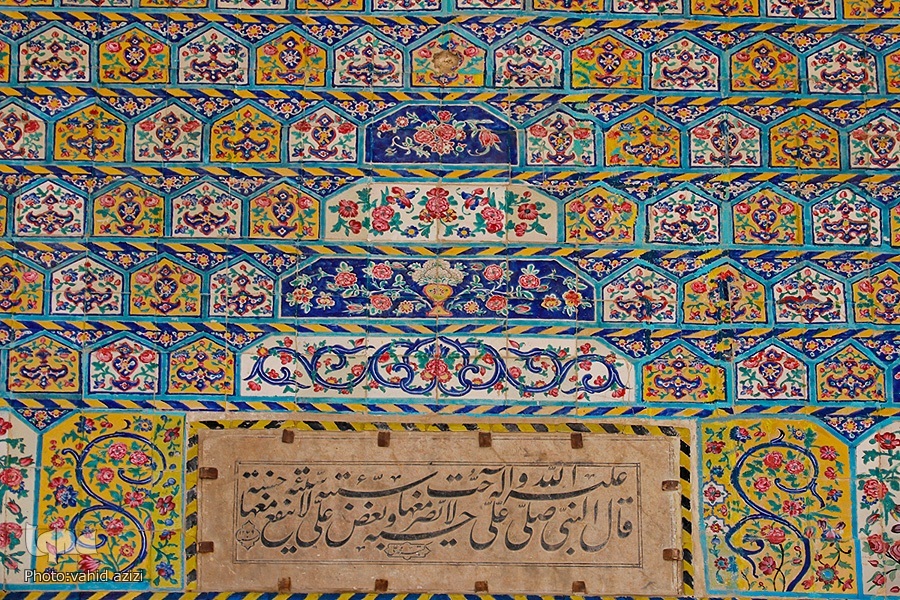 قال النبی صلی الله علیه و آله حب علی حسنة لا تضر معها سیئة و بغض علی سیئة لا تنفع معها حسنة
Photo:vahid azizi